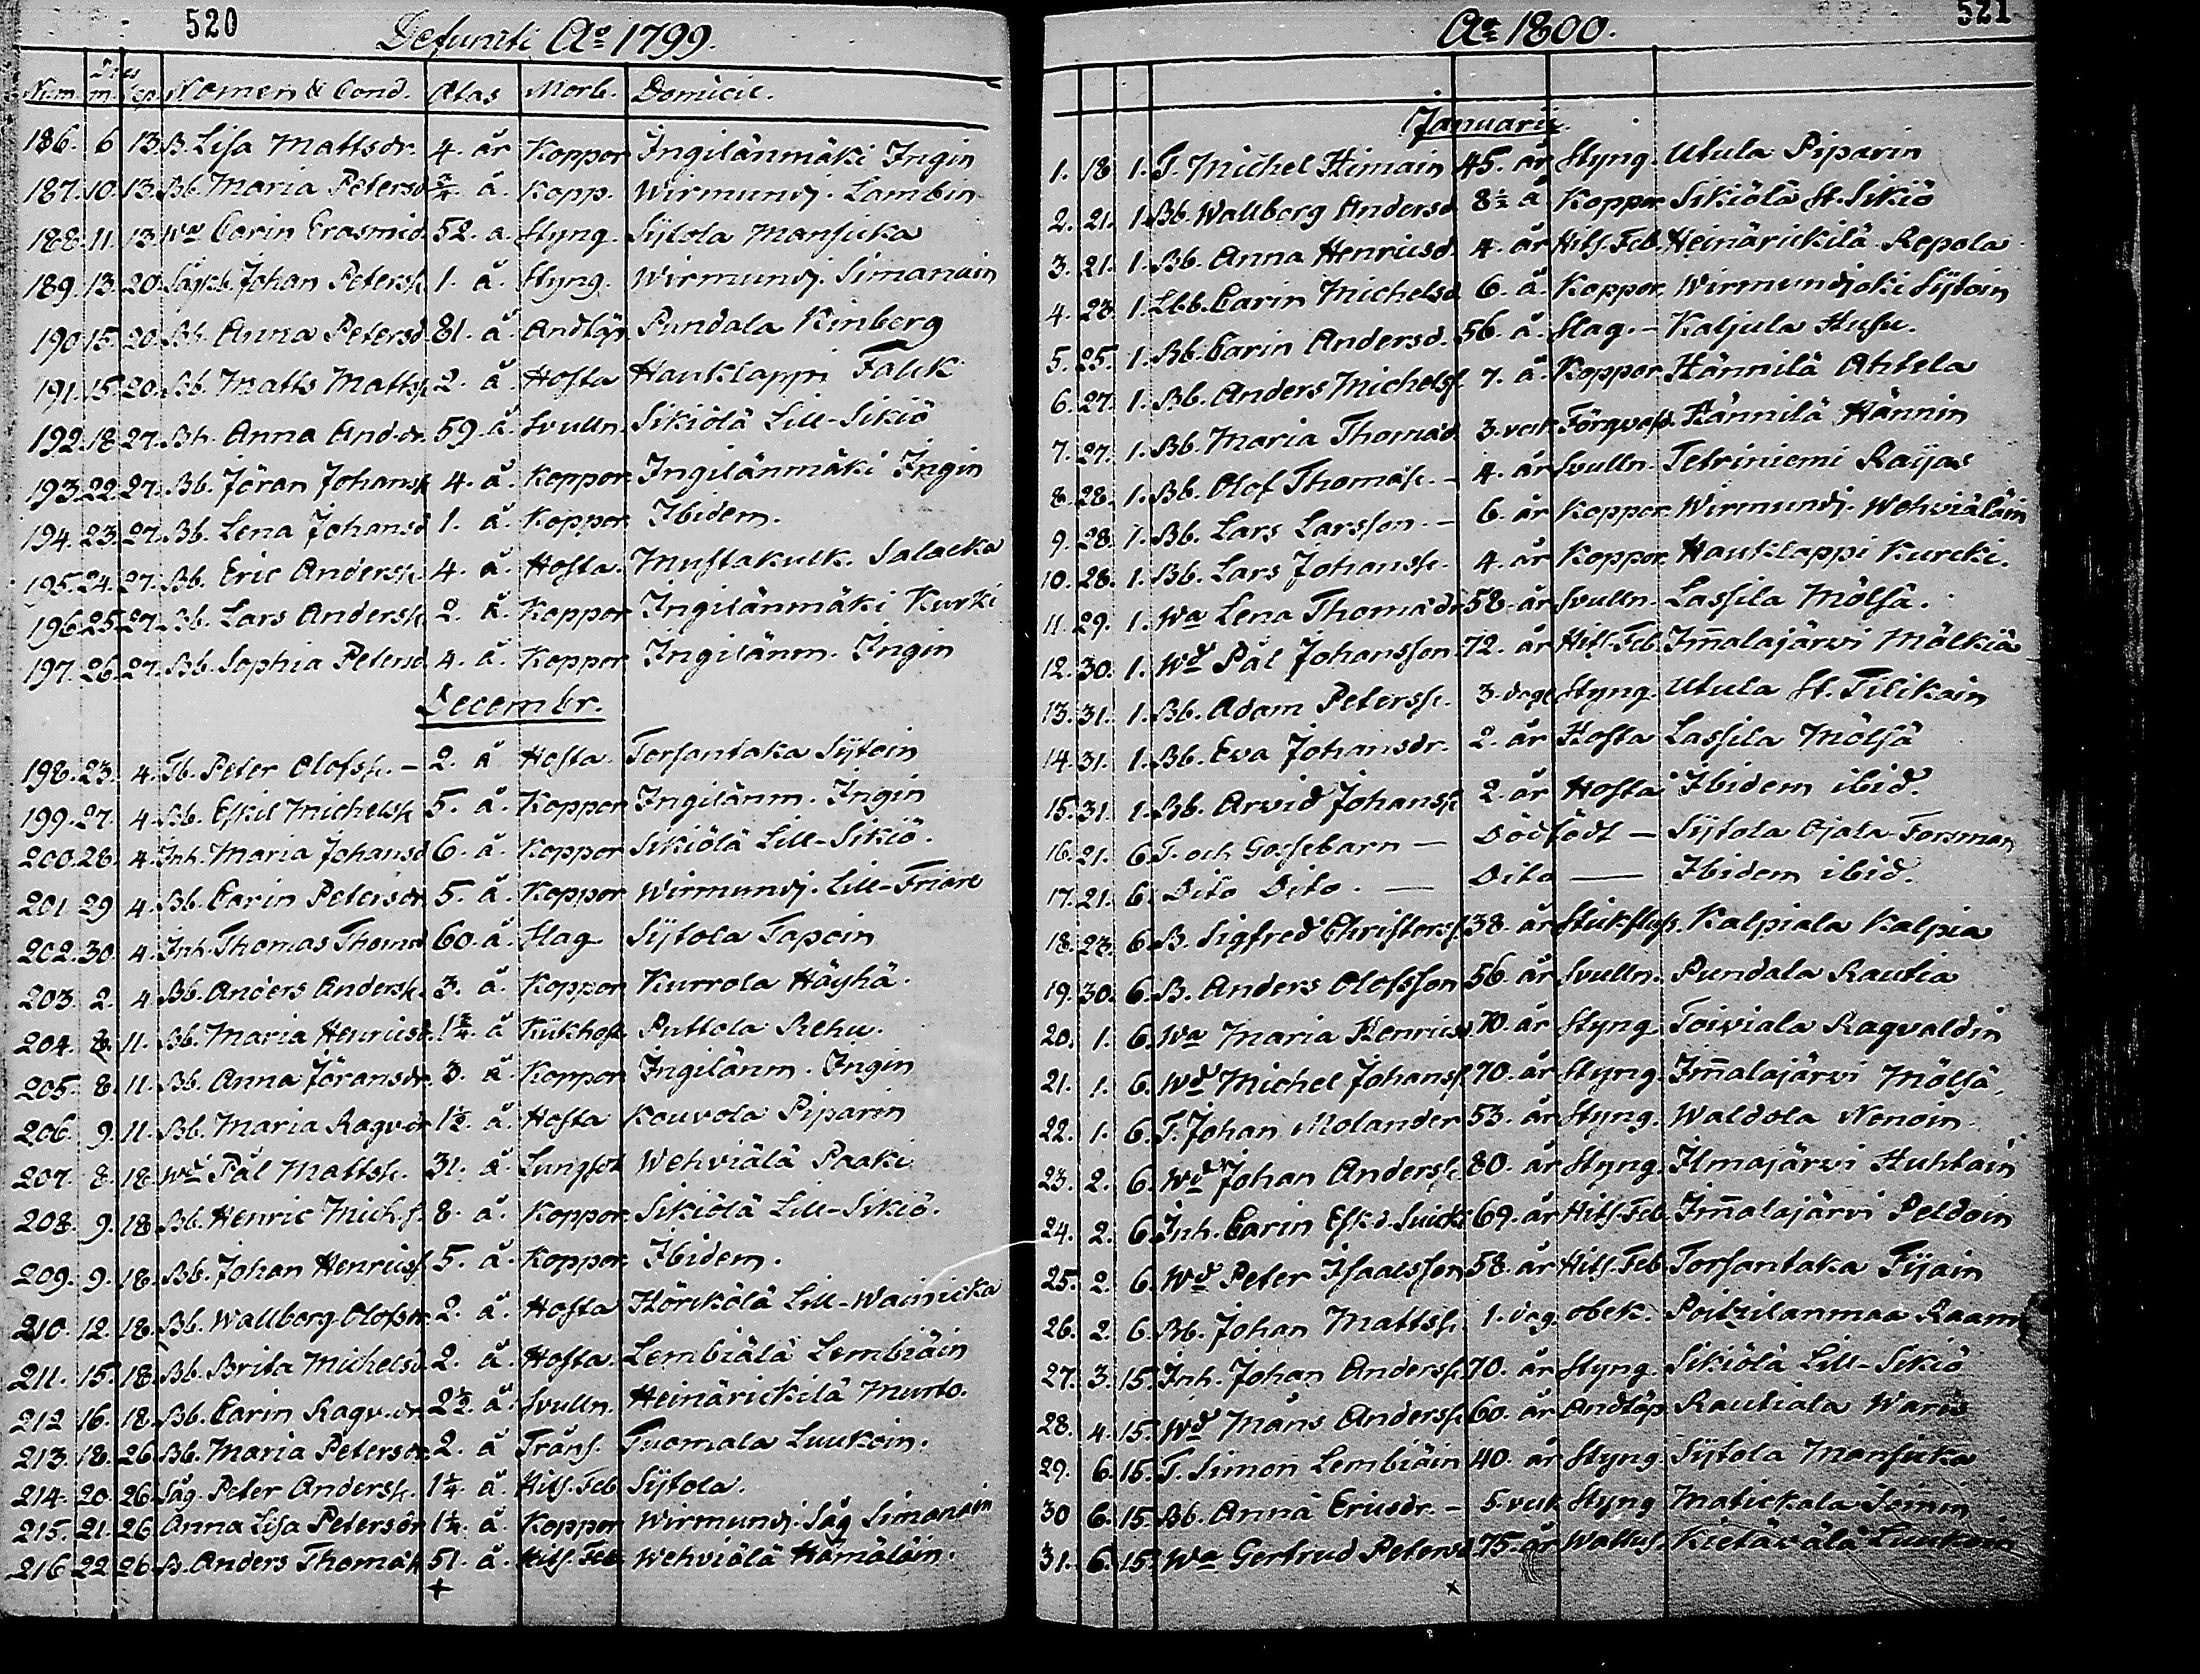 520
Defuncti Ao 1799.
Num. Dies m. Sep. Nomen & Cond. Ætas Morb. Domicil.
186. 6 13 B. Lisa Mattsdr. 4. år Koppor Ingilänmäki Ingin
187. 10. 13. Bb. Maria Petersd. 3/4 å. Kopp. Wirmundj. Lambin
188. 11. 13 Wa Carin Erasmid. 52. a. Styng. Sijtola Mansicka
189. 13. 20. Johan Petersk. 1. å. Styng. Wirmundj. Simanain
190. 15. 20. Bh. Anna Petersd. 81. å. Andtäp Pundala Kinberg
191. 15. 20. Bb. Matts Mattss. 2. å Hosta Hauklappi Falck
192. 18. 27. Bh. Anna And.dr. 59. å. Svulln. Sikiölä Lill-Sikiö
193. 22. 27. Bb. Jöran Johanss. 4. å. Koppor Ingilänmäki Ingin
194. 23. 27. Bb. Lena Johansd 1. å. Koppor Ibidem.
195. 24. 27. Bb. Eric Anderss. 4. å. Hosta. Mustakulk. Salacka
196. 25. 27. Bb. Lars Anderss. 2. å. Koppor Ingilänmäki Kurki
197. 26. 27. Bb. Sophia Petersd. 4. å. Koppor Ingilänm. Ingin
Decembr.
198. 23. 4. Tb. Peter Olofss. – 2. å Hosta Torsantaka Sijtoin
199. 27. 4. Bb. Eskil Michelss. 5. å. Koppor Ingilänm. Ingin
200. 28. 4. Inh. Maria Johansd 6. å. Koppor Sikiölä Lill-Sikiö.
201 29 4. Bb. Carin Petersdr. 5. å. Koppor Wirmundj. Lill-Friare
202. 30. 4. Inh. Thomas Thomss 60. å. Slag Sijtola Tapoin
203. 2. 4 Bb. Anders Anderss. 3. å. Koppor Kurrola Häyhä.
204. 8. 11. Bb. Maria Henricsd. 1 3/4. å Kikhost. Puttola Rehu.
205. 8. 11. Bb. Anna Jöransdr. 3. å. Koppor Ingilänm. Ingin
206. 9. 11. Bb. Maria Ragvdr 1 1/2. å. Hosta Kouvola Piparin
207. 8. 18. Wd Pål Mattss. 31. å. Lungsot Wehviälä Paaki
208. 9. 18 Bb. Henric Mich.s. 8. å. Koppor. Sikiölä Lill-Sikiö.
209. 9. 18. Bb. Johan Henricss. 5. å. Koppor Ibidem.
210. 12. 18. Bb. Wallborg Olofsdr. 2. å. Hosta Hörckölä Lill-Wainicka
211. 15. 18. Bb. Brita Michelsd. 2. å. Hosta. Lembiälä Lembiäin
212 16. 18. Bb. Carin Ragv.dr. 2 1/2. å. Svulln. Heinärickilä Munto.
213. 18. 26 Bb. Maria Petersdr. 2. å Tråns. Tuomala Luukoin.
214. 20. 26 Såg. Peter Anderss. 1 1/4. å. Hits. Feb Sijtola.
215. 21. 26 Anna Lisa Petersdr. 1 1/4. å. Koppor Wirmundj. Såg Simanain
216 22 26 B. Anders Thomass 51. å. Hits. Feb. Wehviälä Hämäläin.
+
521
Ao 1800.
Januarii.
1. 18 1. T. Michel Himain 45. år Styng. Utula Piparin
2. 21. 1. Bb. Wallborg Andersd. 8 1/2 å. Koppor Sikiölä St. Sikiö
3. 21. 1. Bb. Anna Henricsd. 4. år Hits. Feb. Heinärickilä Repola
4. 23. 1. Carin Michelsd. 6. å. Koppor. Wirmundjoki Sijtoin
5. 25. 1. Bb. Carin Andersd. 56. å. Slag. – Kaljula Husu.
6. 27. 1. Bb. Anders Michelss. 7. å. Koppor. Hännilä Ahtela
7. 27. 1. Bb. Maria Thomasd. 3. veck Hännilä Hännin
8. 28. 1. Bb. Olof Thomass. – 4. år Svulln. Tetriniemi Raijas
9. 28. 1. Bb. Lars Larsson. – 6. år Koppor. Wirmundj. Wehviäläin
10. 28. 1. Bb. Lars Johanss. 4. år Koppor Hauklappi Kurcki.
11. 29. 1. Wa Lena Thomasdr 58. år Svulln. Lassila Mölsä.
12. 30. 1. Wd Pål Johansson 72. år Hits. Feb. Im̄alajärvi Mälkiä
13. 31. 1. Bb. Adam Peterss. 3. dagr Styng. Utula St. Tilikain
14. 31. 1. Bb. Eva Johansdr. 2. år Hosta Lassila Mölsä
15. 31. 1. Bb. Arvid Johanss. 2. år Hosta Ibidem ibid.
16. 21. 6. T. och Gossebarn – Dödfödt – Sijtola Ojala Forsman
17. 21. 6. Dito Dito. – Dito – Ibidem ibid.
18. 23. 6. B. Sigfred Christerss. 38. år Kalpiala Kalpia
19. 30. 6. B. Anders Olofsson 56. år Svulln. Pundala Rautia
20. 1. 6. Wa Maria Henricsd. 70. år Styng. Toiviala Ragvaldin
21. 1. 6. Wd Michel Johanss. 70. år Styng. Im̄alajärvi Mölsä
22. 1. 6. T. Johan Molander 53. år Styng. Waldola Nenoin
23. 2. 6. Wd Johan Anderss. 80. år Styng. Ilmajärvi Huhtain
24. 2. 6. Inh. Carin Esk.d. Suick 69. år Hits. Feb. Im̄alajärvi Peldoin
25. 2. 6. Wd Peter Isacsson 58. år Hits. Feb Torsantaka Tijain
26. 2. 6. Bb. Johan Mattss. 1. dag. obek. Poitzilanmaa Raam
27. 3. 15. Inh. Johan Anderss. 70. år Styng. Sikiölä Lill-Sikiö
28. 4. 15. Wd Måns Anderss. 60. år Andtäp Rautiala Waris
29. 6. 15. T. Simon Lembiäin 40. år Styng. Sijtola Mansicka
30 6. 15. Bb. Anna Ericsdr. – 5. veck Styng Matickala Soinin
31. 6. 15. Wa Gertrud Petersd 75. år Wattus. Kietävälä Luukoin
x